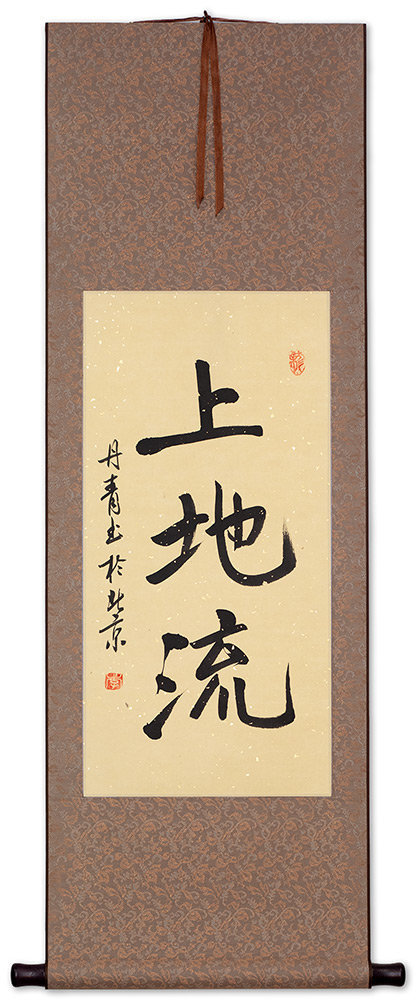 上地流
丹青书於北京